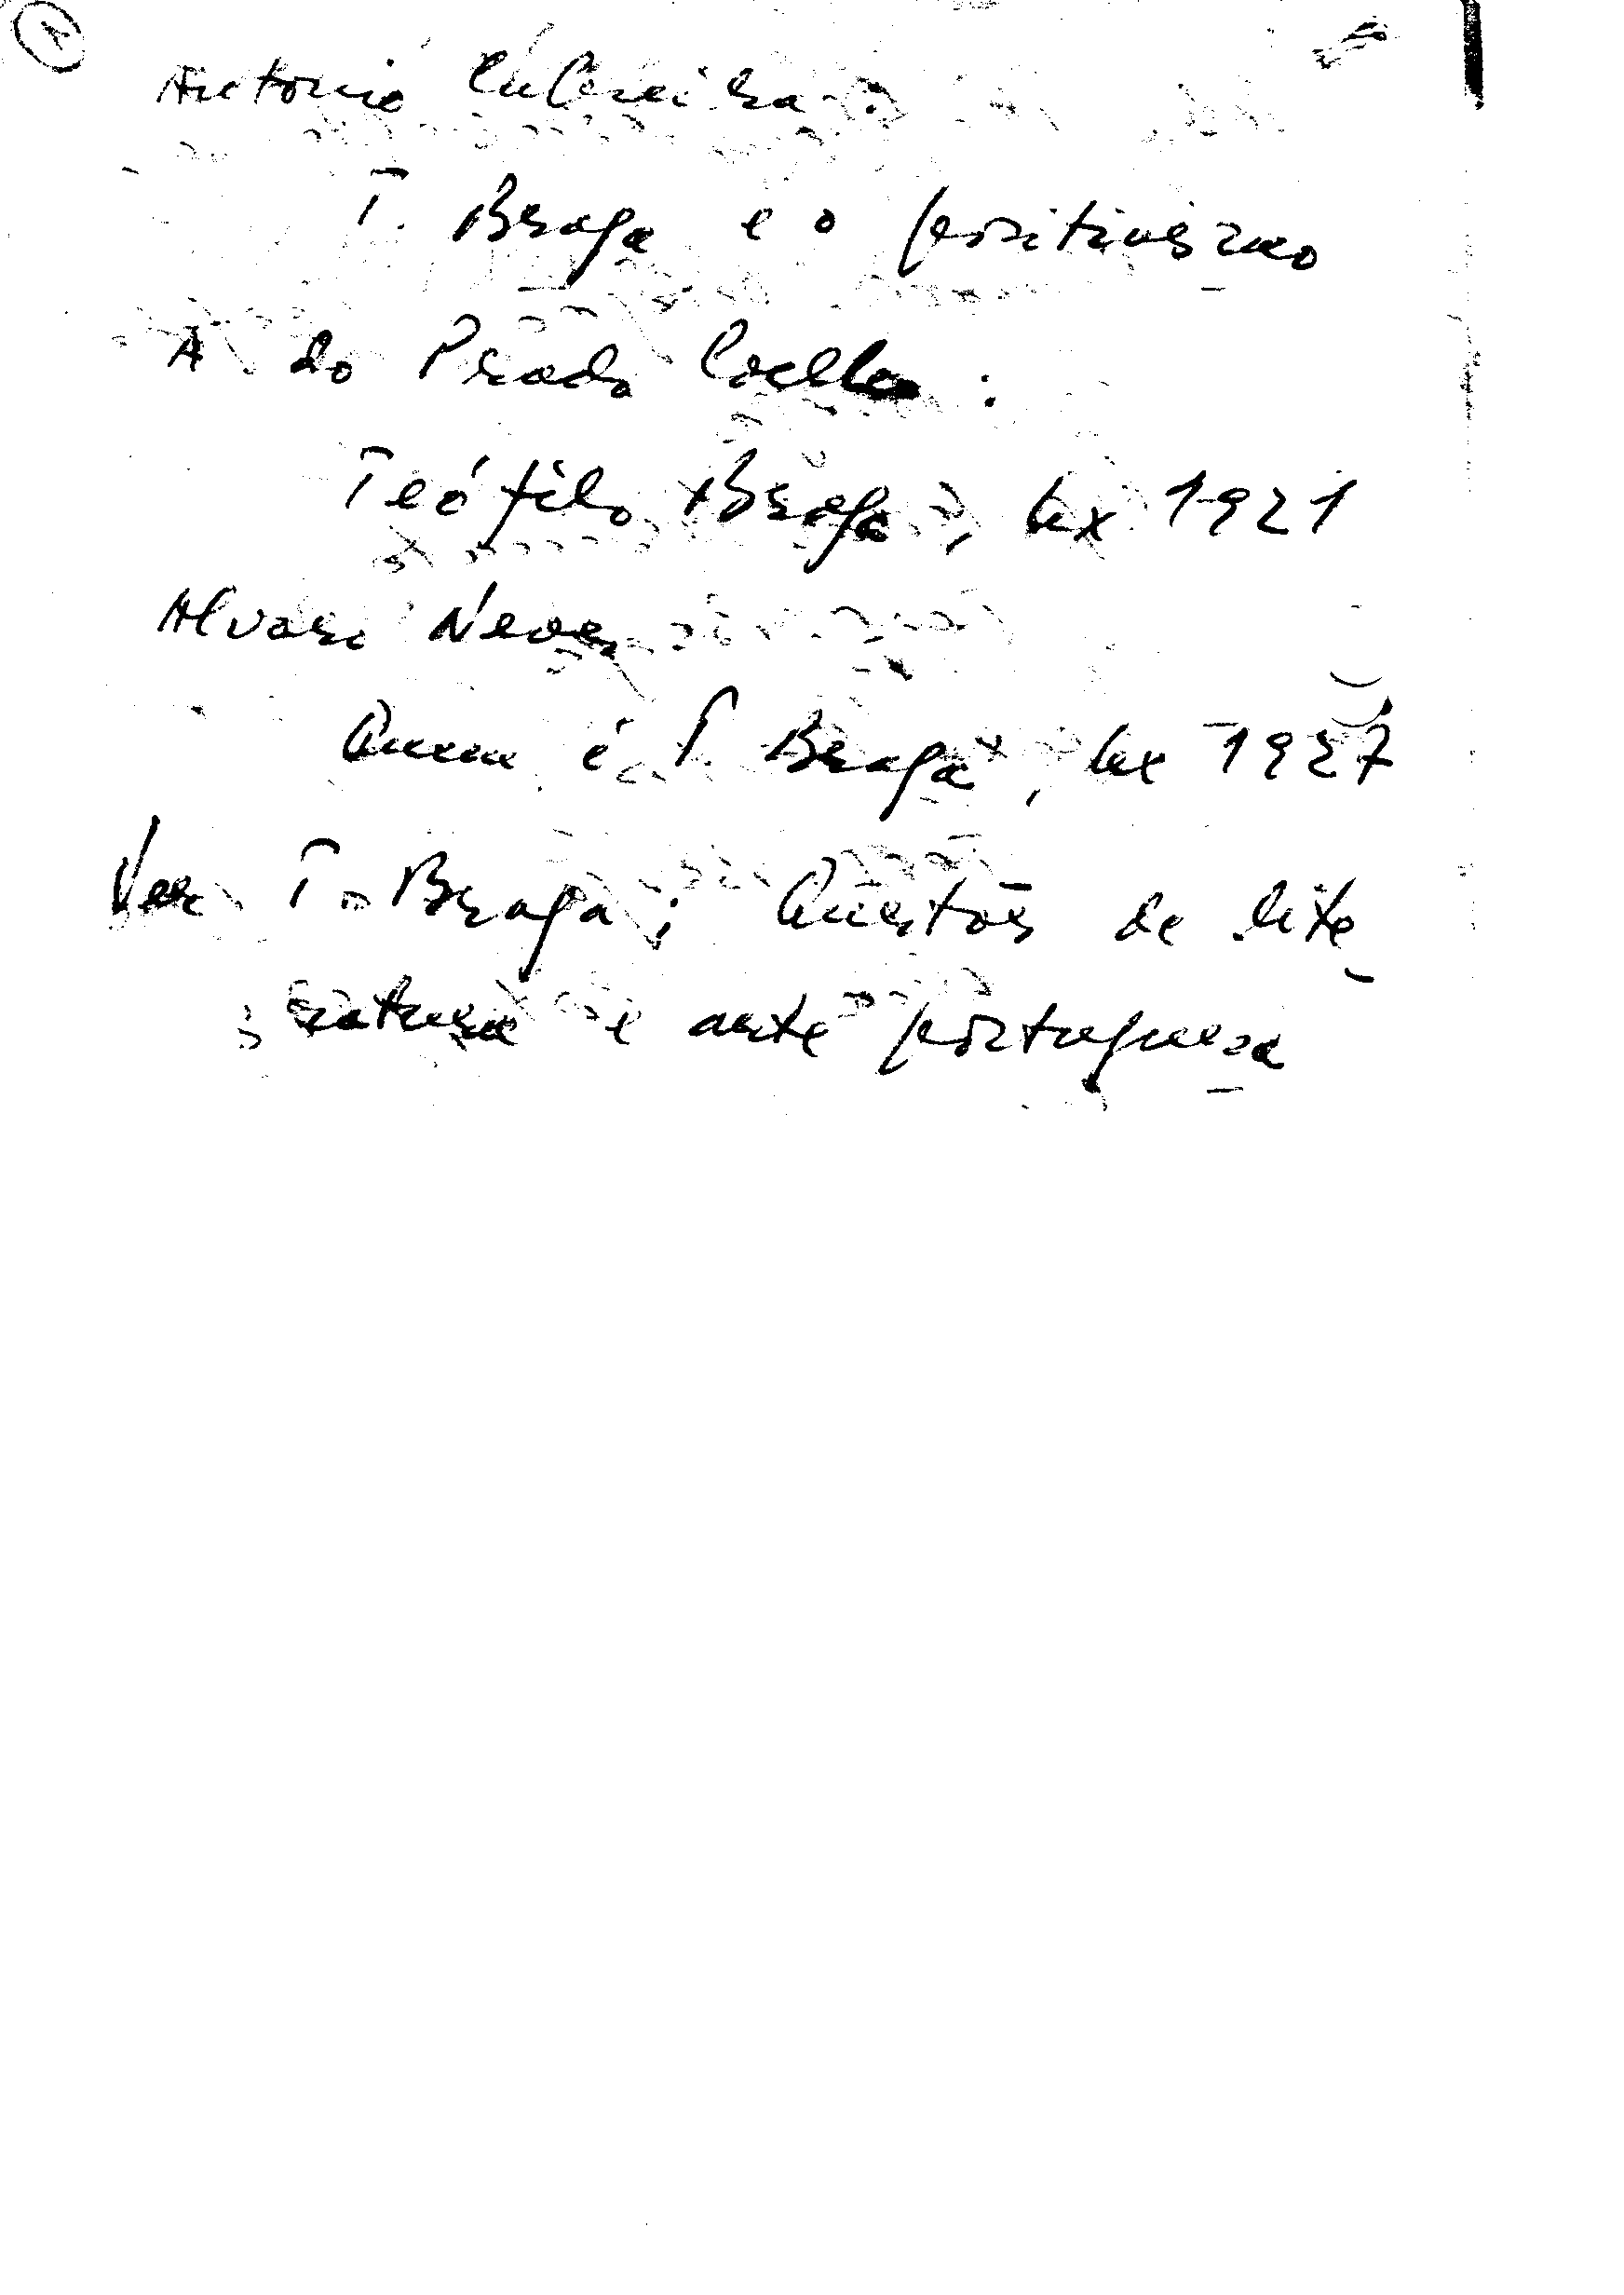 Antonio
T. Braga e o positivismo
A do Prado Coelho :
Teófilo Braga, Lx 1921
Alvaro Neves
Quem é T. Braga, Lx 1927
Ver T. Braga: Questões de lite
ratura e arte portuguesa